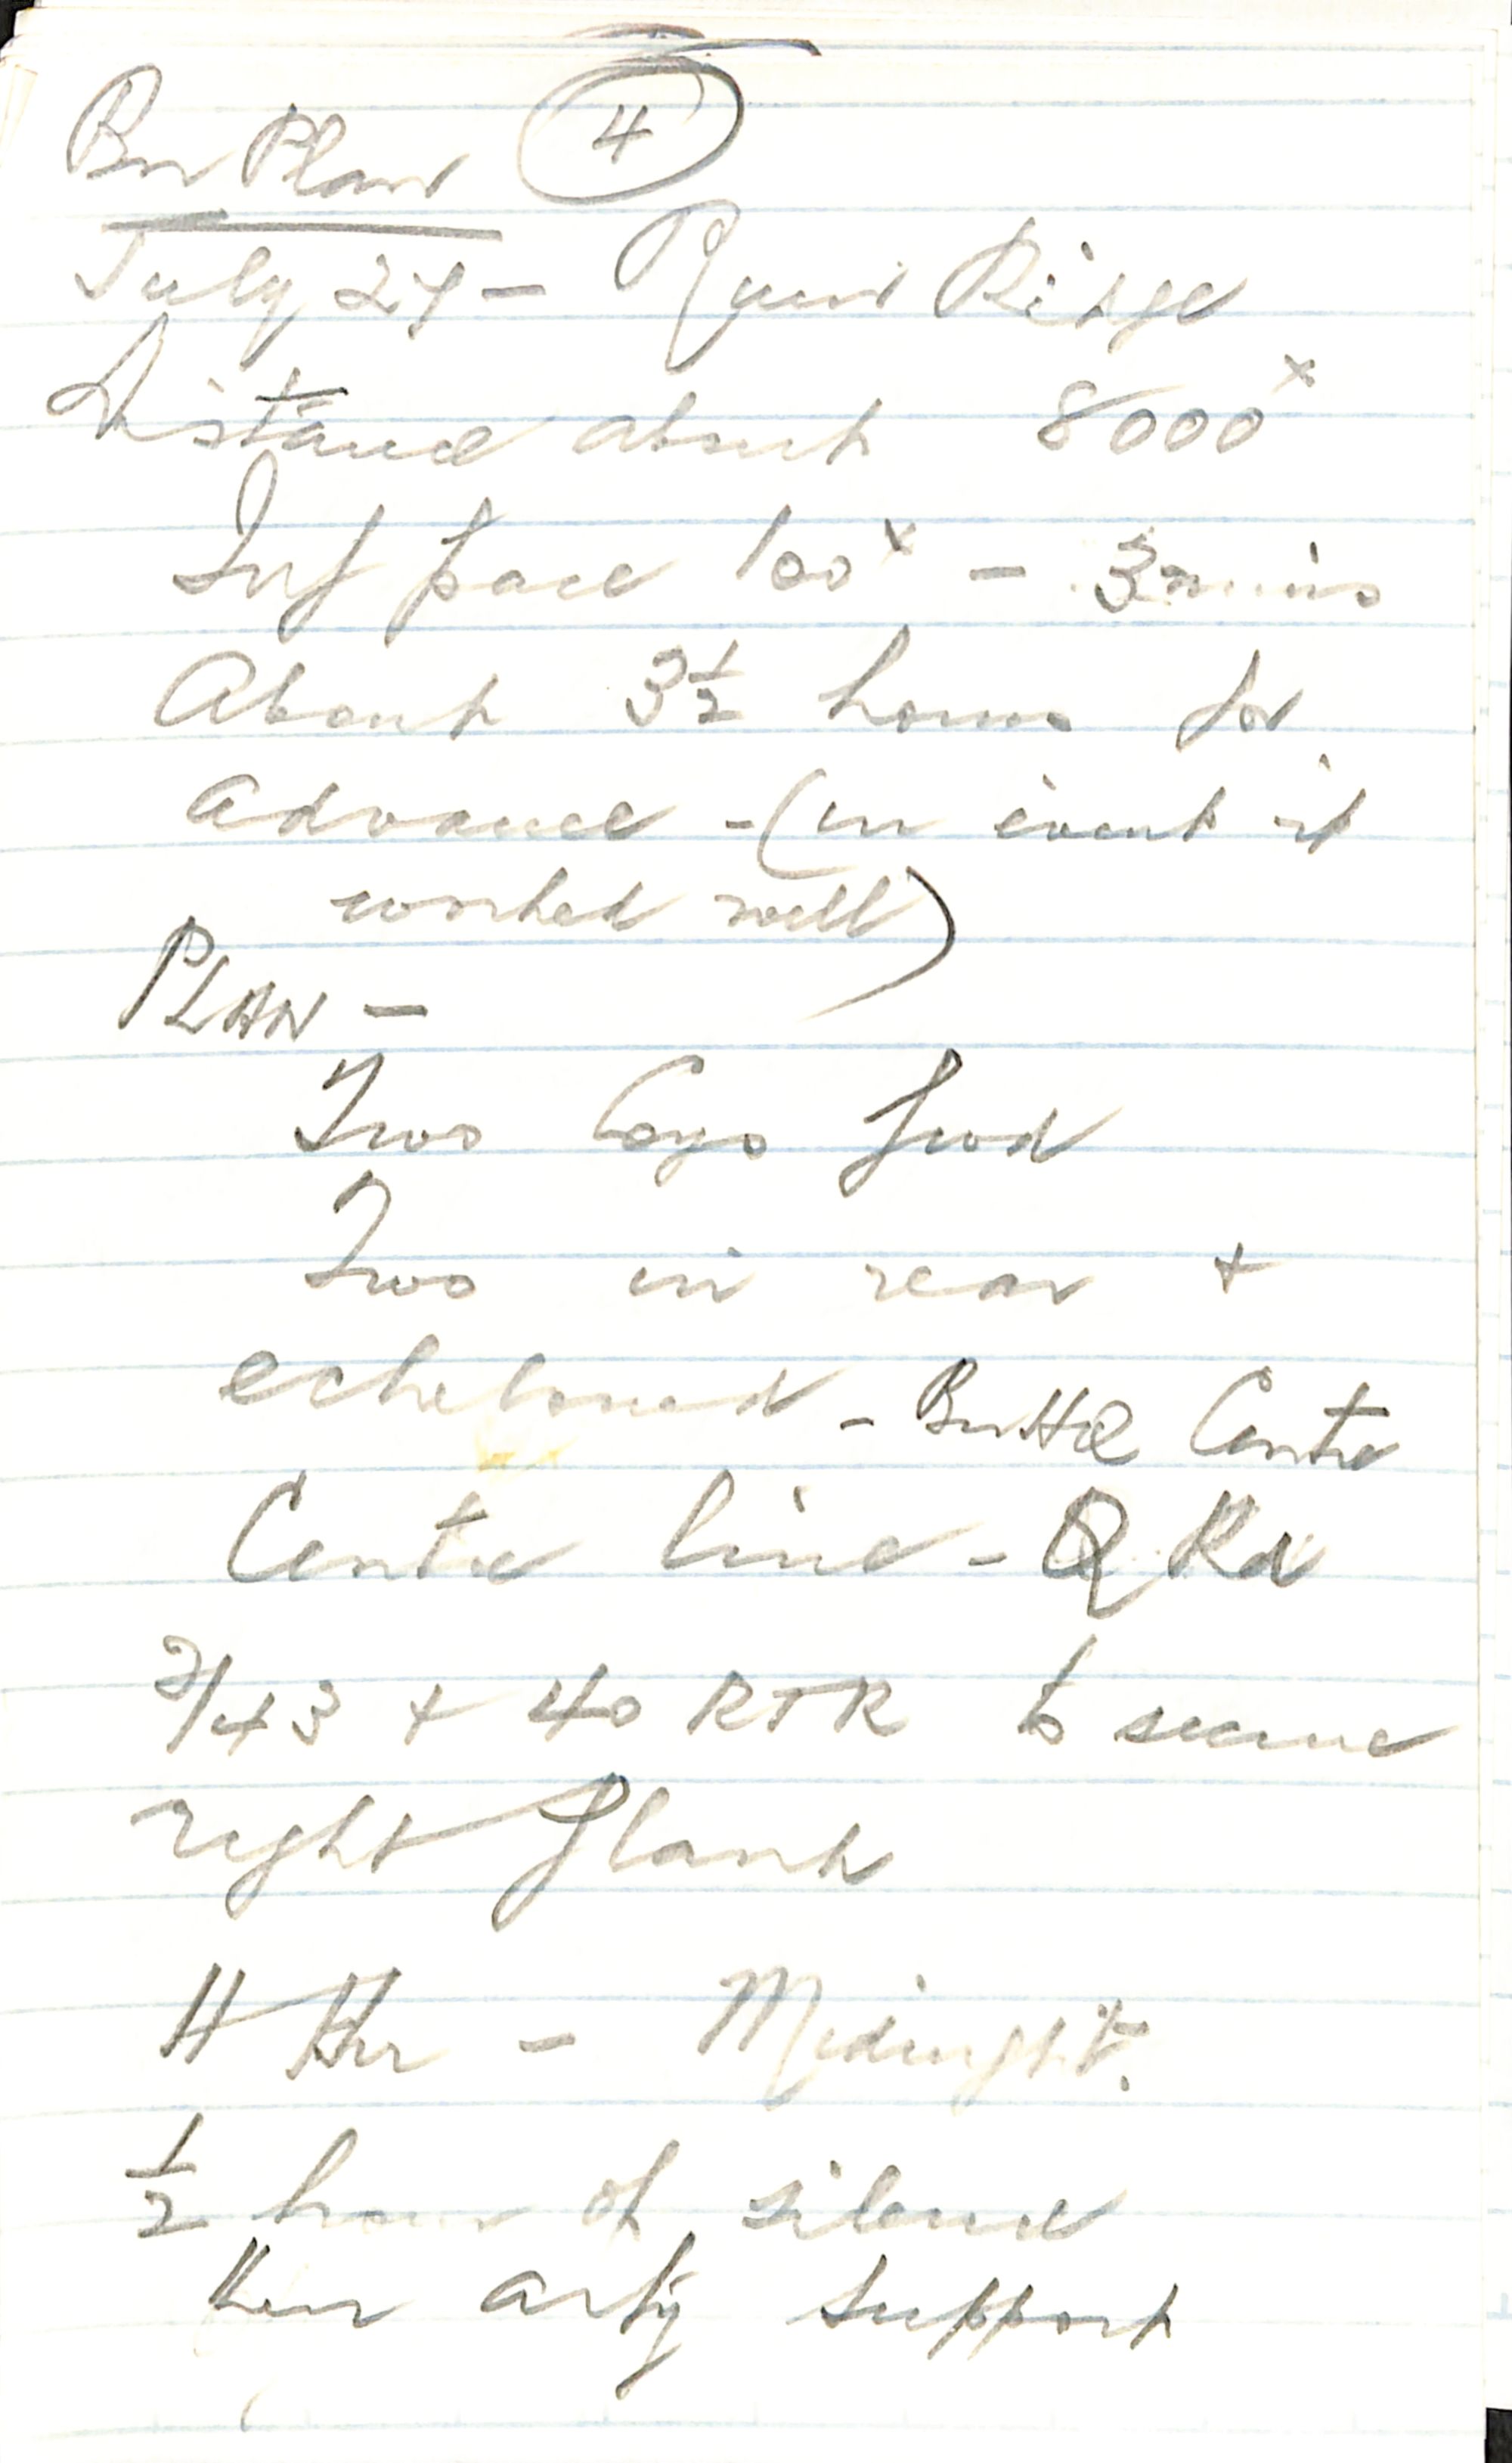 Bn Plan 4
July 27 - Ruin Ridge
Distance about 8000x
Inf pace 100x - 3 mins
About 3 1/2 hours for
advance - (in event it
worked well)
PLAN -
Two Coys fwd
Two in rear +
echeloned - Bn HQ Centre
Centre line - Q Rd
2/43 + 40 RTR to secure
right flank
H Hr - Midnight.
1/2 hour of silence
then arty support